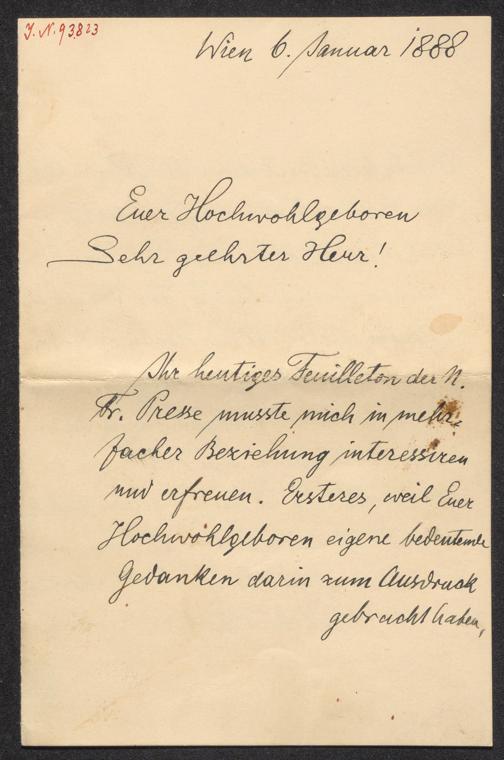 J. N. 93.823
Wien 6. Januar 1888
Euer Hochwohlgeboren
Sehr geehrter Herr!
Ihr heutiges Feuilleton der N.
Fr. Presse musste mich in mehr-
facher Beziehung interessiren
und erfreuen. Ersteres, weil Euer
Hochwohlgeboren eigene bedeutende
Gedanken darin zum Ausdruck
gebracht haben,